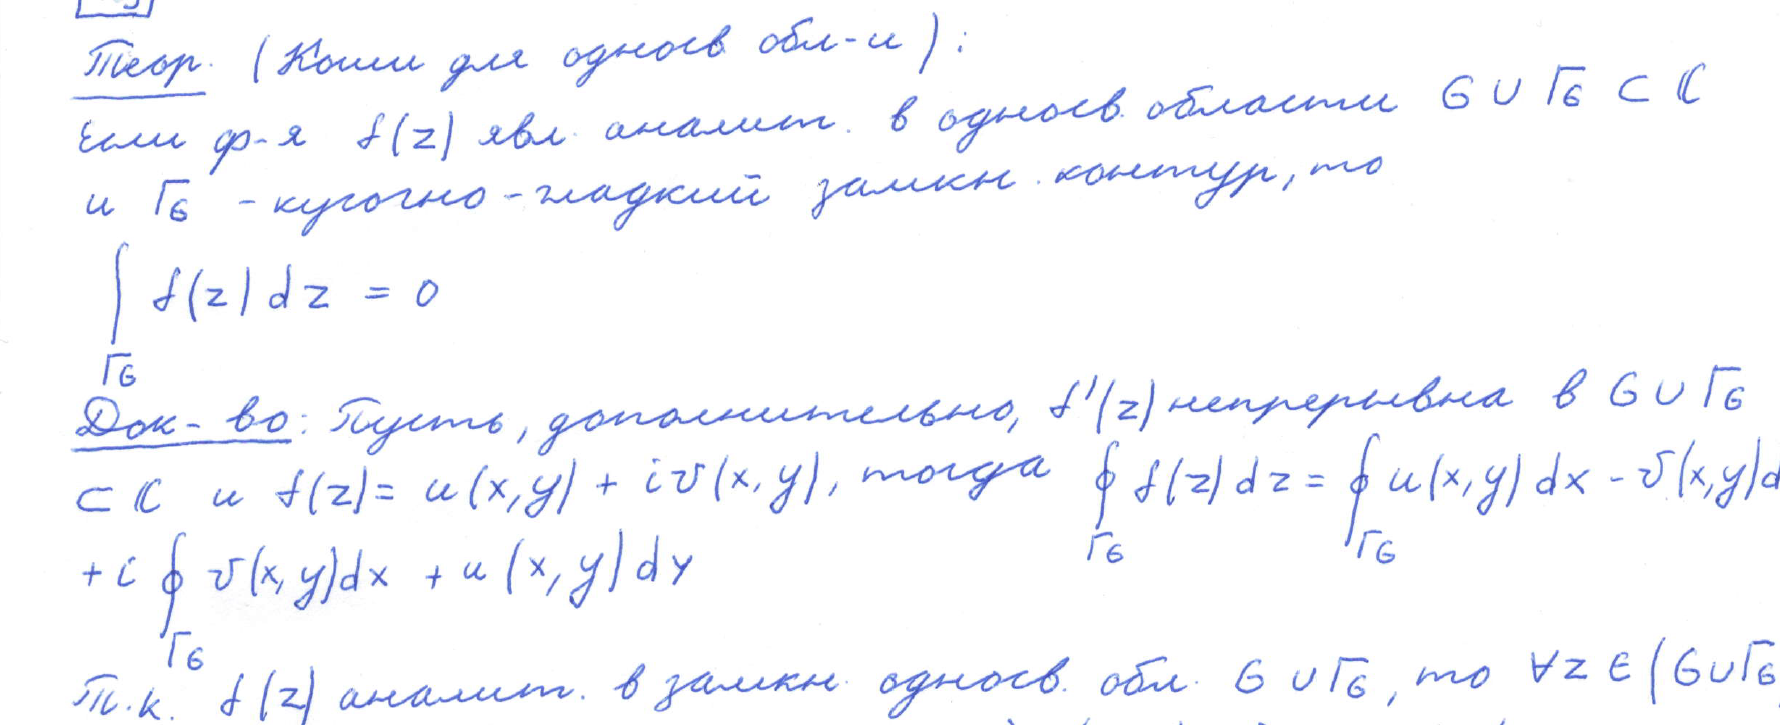 Теор. (Коши для односв обл-и):
Если ф-я f(z) явл. аналит. в односв. области G ∪ Γ_G ⊂ ℂ
и Γ_G - кусочно-гладкий замкн. контур, то
∫_{Γ_G} f(z) dz = 0
Док-во: Пусть, дополнительно, f'(z) непрерывна в G ∪ Γ_G
⊂ ℂ и f(z) = u(x,y) + i v(x,y), тогда ∮_{Γ_G} f(z) dz = ∮_{Γ_G} u(x,y) dx - v(x,y)d
+ i ∮_{Γ_G} v(x,y)dx + u(x,y) dy
Т.к. f(z) аналит. в замкн. односв. обл. G ∪ Γ_G, то ∀z ∈ (G∪Γ_G